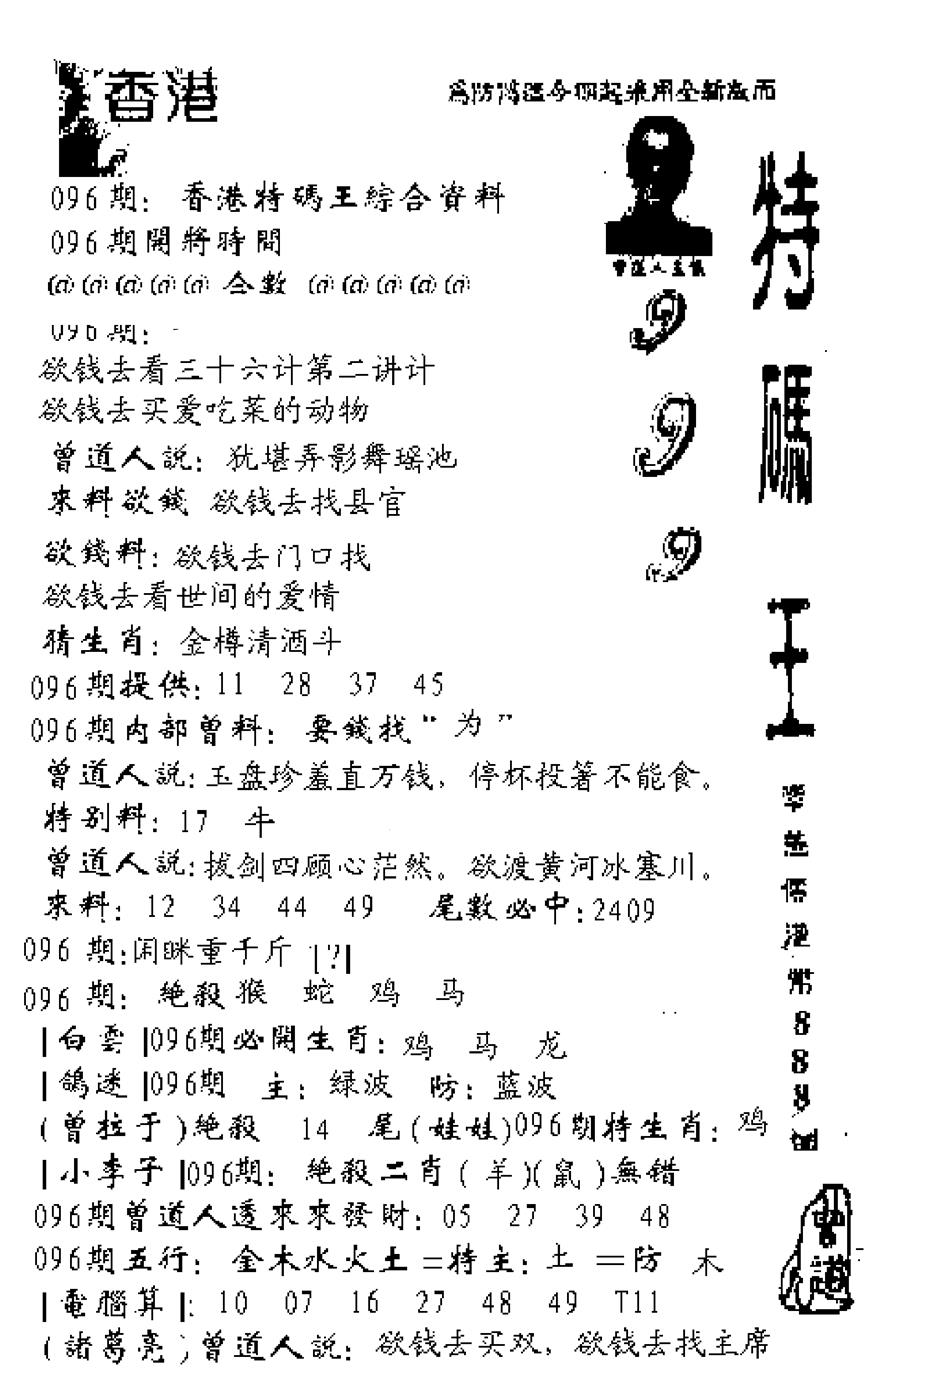 香港
為防偽造今期起采用全新版面
096期: 香港特碼王綜合資料
096期開將時間
@@@@@ 合數 @@@@@
曾道人主講
096期:
欲钱去看三十六计第二讲计
欲钱去买爱吃菜的动物
曾道人説: 犹堪弄影舞瑶池
來料欲錢 欲钱去找县官
欲錢料: 欲钱去门口找
欲钱去看世间的爱情
猜生肖: 金樽清酒斗
096期提供: 11 28 37 45
096期内部曾料: 要錢找“为”
曾道人説: 玉盘珍羞直万钱, 停杯投箸不能食。
特别料: 17 牛
曾道人説: 拔剑四顾心茫然。欲渡黄河冰塞川。
來料: 12 34 44 49 尾數必中: 2409
096 期: 闲眯重千斤 [?]
096 期: 絶殺 猴 蛇 鸡 马
|白雲|096期必開生肖: 鸡 马 龙
|鴿迷|096期 主: 绿波 防: 蓝波
(曾拉于)絶殺 14 尾(娃娃)096期特生肖: 鸡
|小李子|096期: 絶殺二肖(羊)(鼠)無错
096期曾道人透來來發財: 05 27 39 48
096期五行: 金木水火土=特主: 土 =防 木
|電腦算|: 10 07 16 27 48 49 T11
(諸葛亮)曾道人説: 欲钱去买双, 欲钱去找主席
9
9
9
特
碼
王
港
幣
8
8
8
曾道